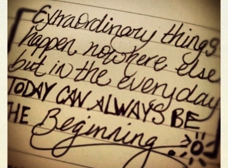 Extraordinary things
happen nowhere else
but in the everyday
TODAY CAN ALWAYS BE
THE Beginning